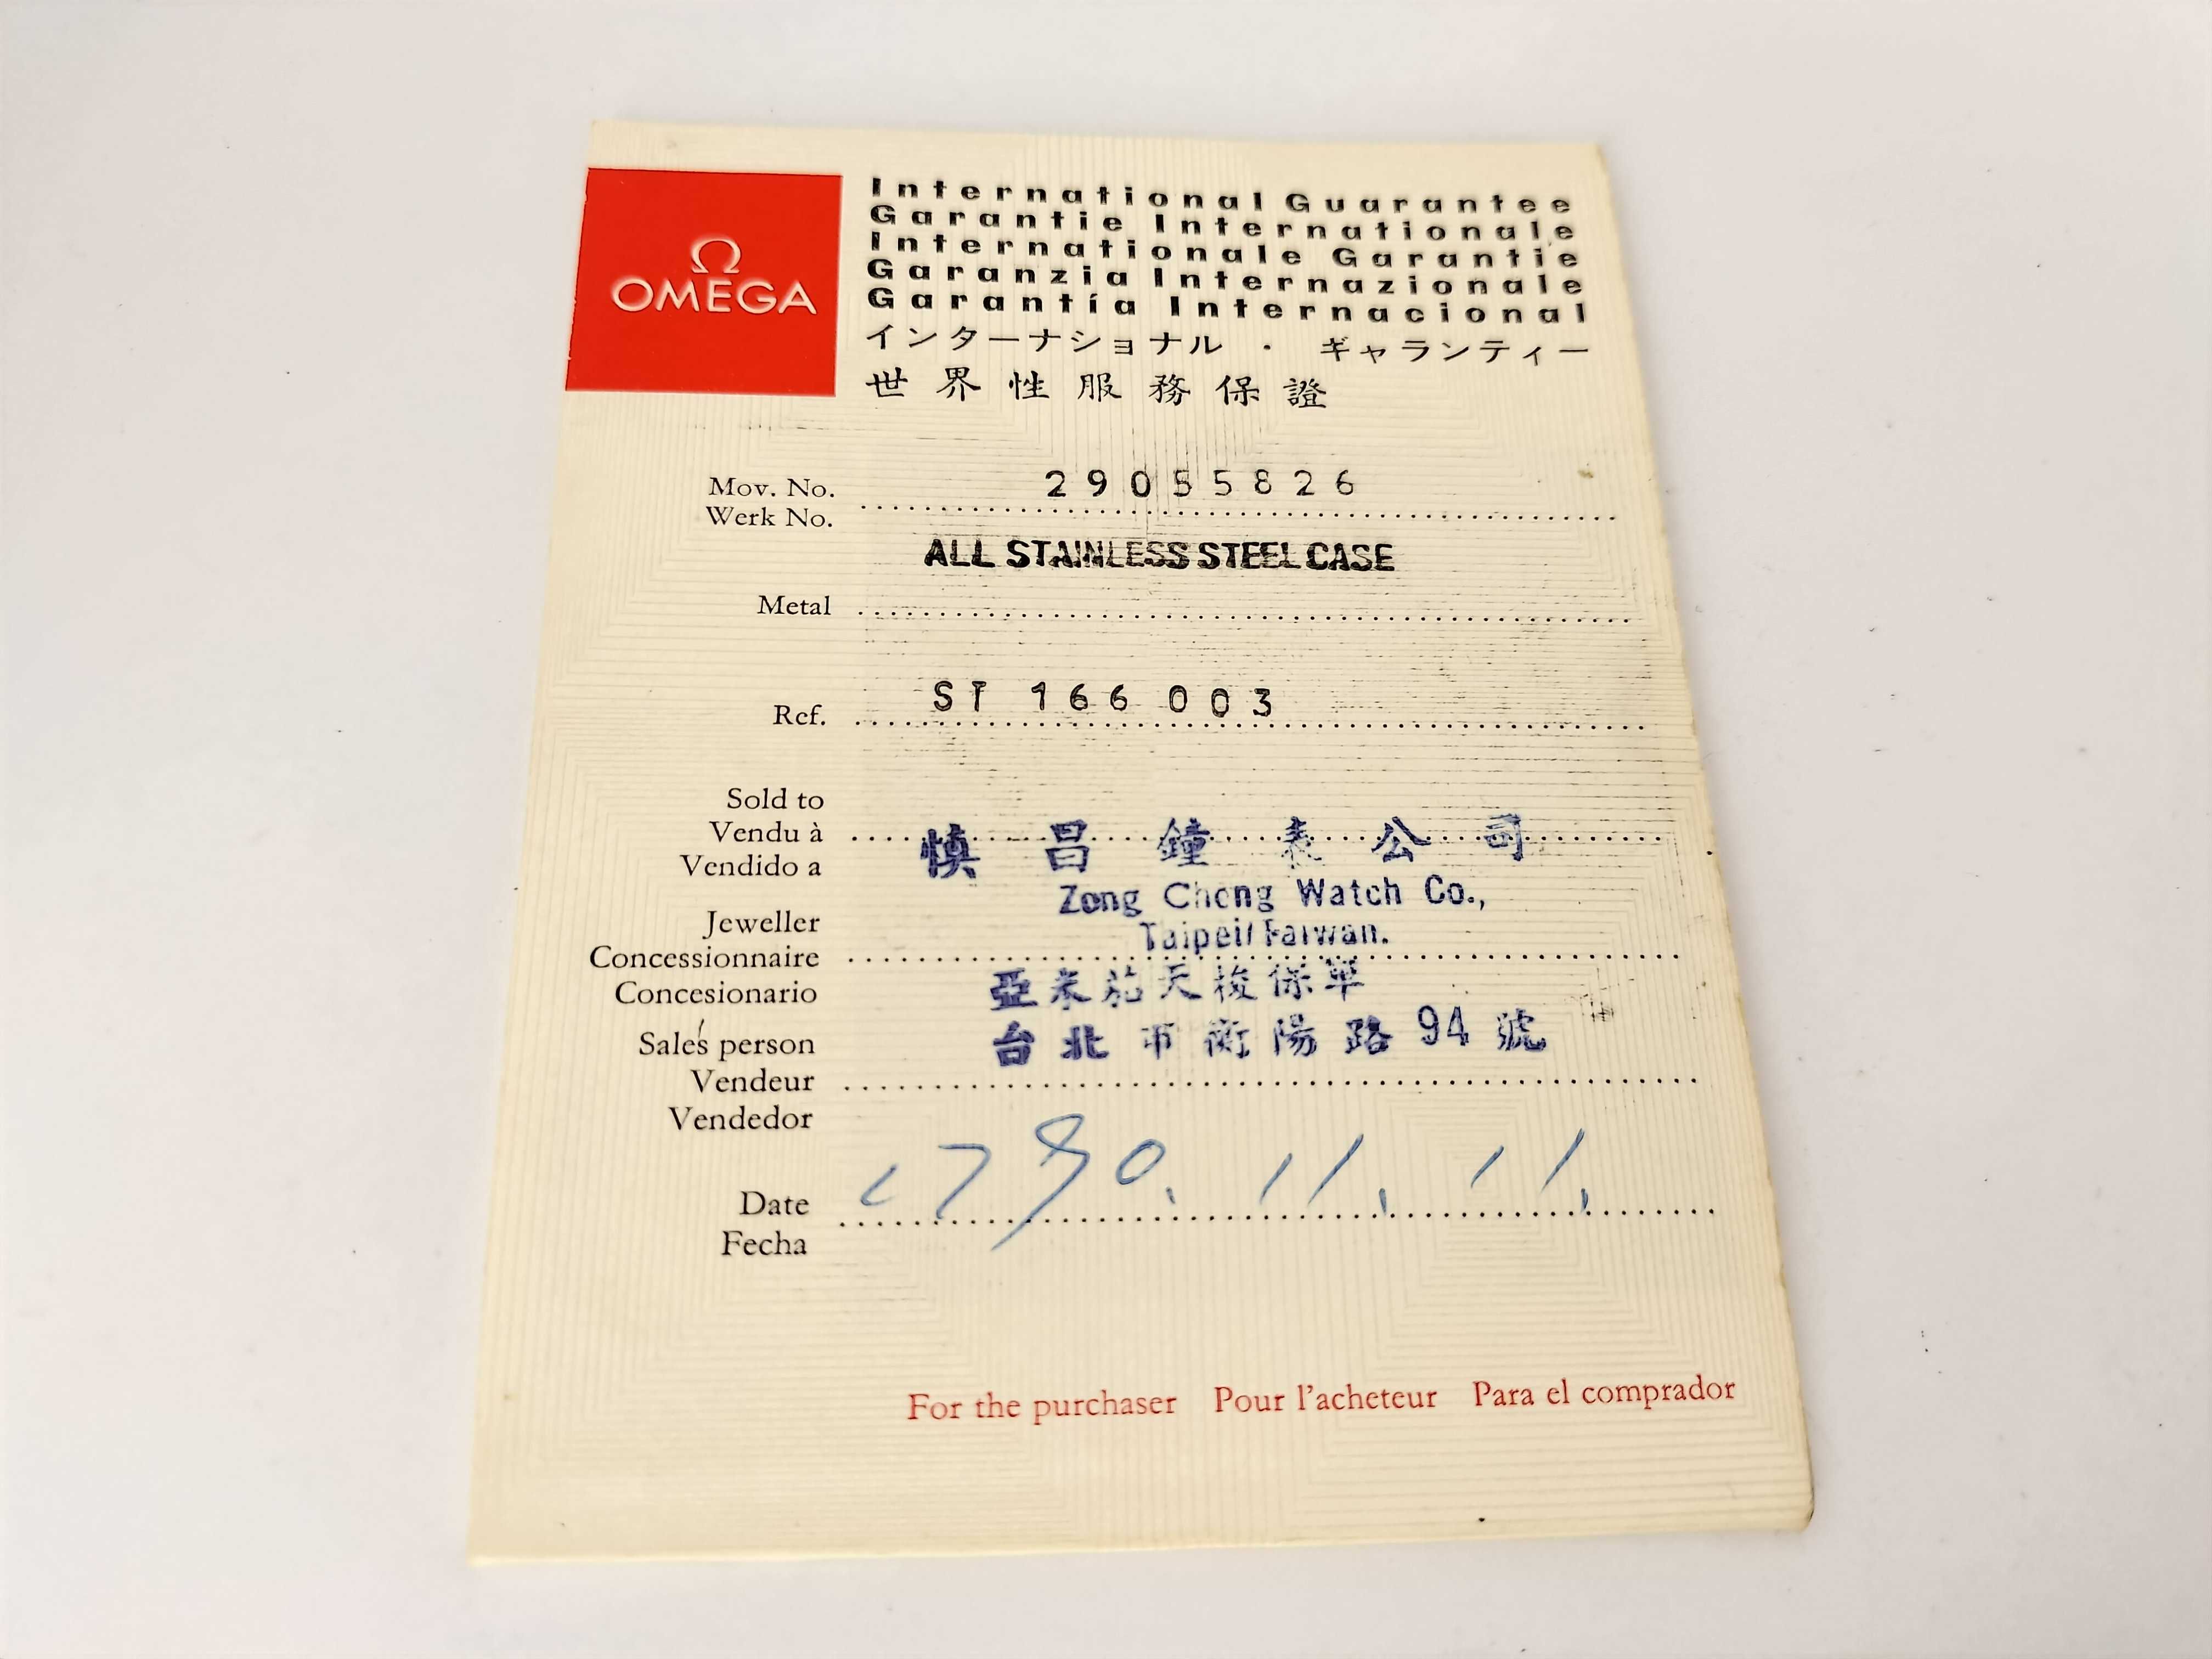 Ω
OMEGA
International Guarantee
Garantie Internationale
Internationale Garantie
Garanzia Internazionale
Garantía Internacional
インターナショナル・ギャランティー
世界性服務保證
Mov. No. 29055826
Werk No.
ALL STAINLESS STEEL CASE
Metal
Ref. ST 166 003
Sold to
Vendu à
Vendido a
慎昌鐘表公司
Zong Chong Watch Co.,
Taipei/Taiwan.
Jeweller
Concessionnaire
Concesionario
亞米茄天梭保單
台北市衡陽路94號
Sales person
Vendeur
Vendedor
Date 11. 11.
Fecha
For the purchaser Pour l'acheteur Para el comprador